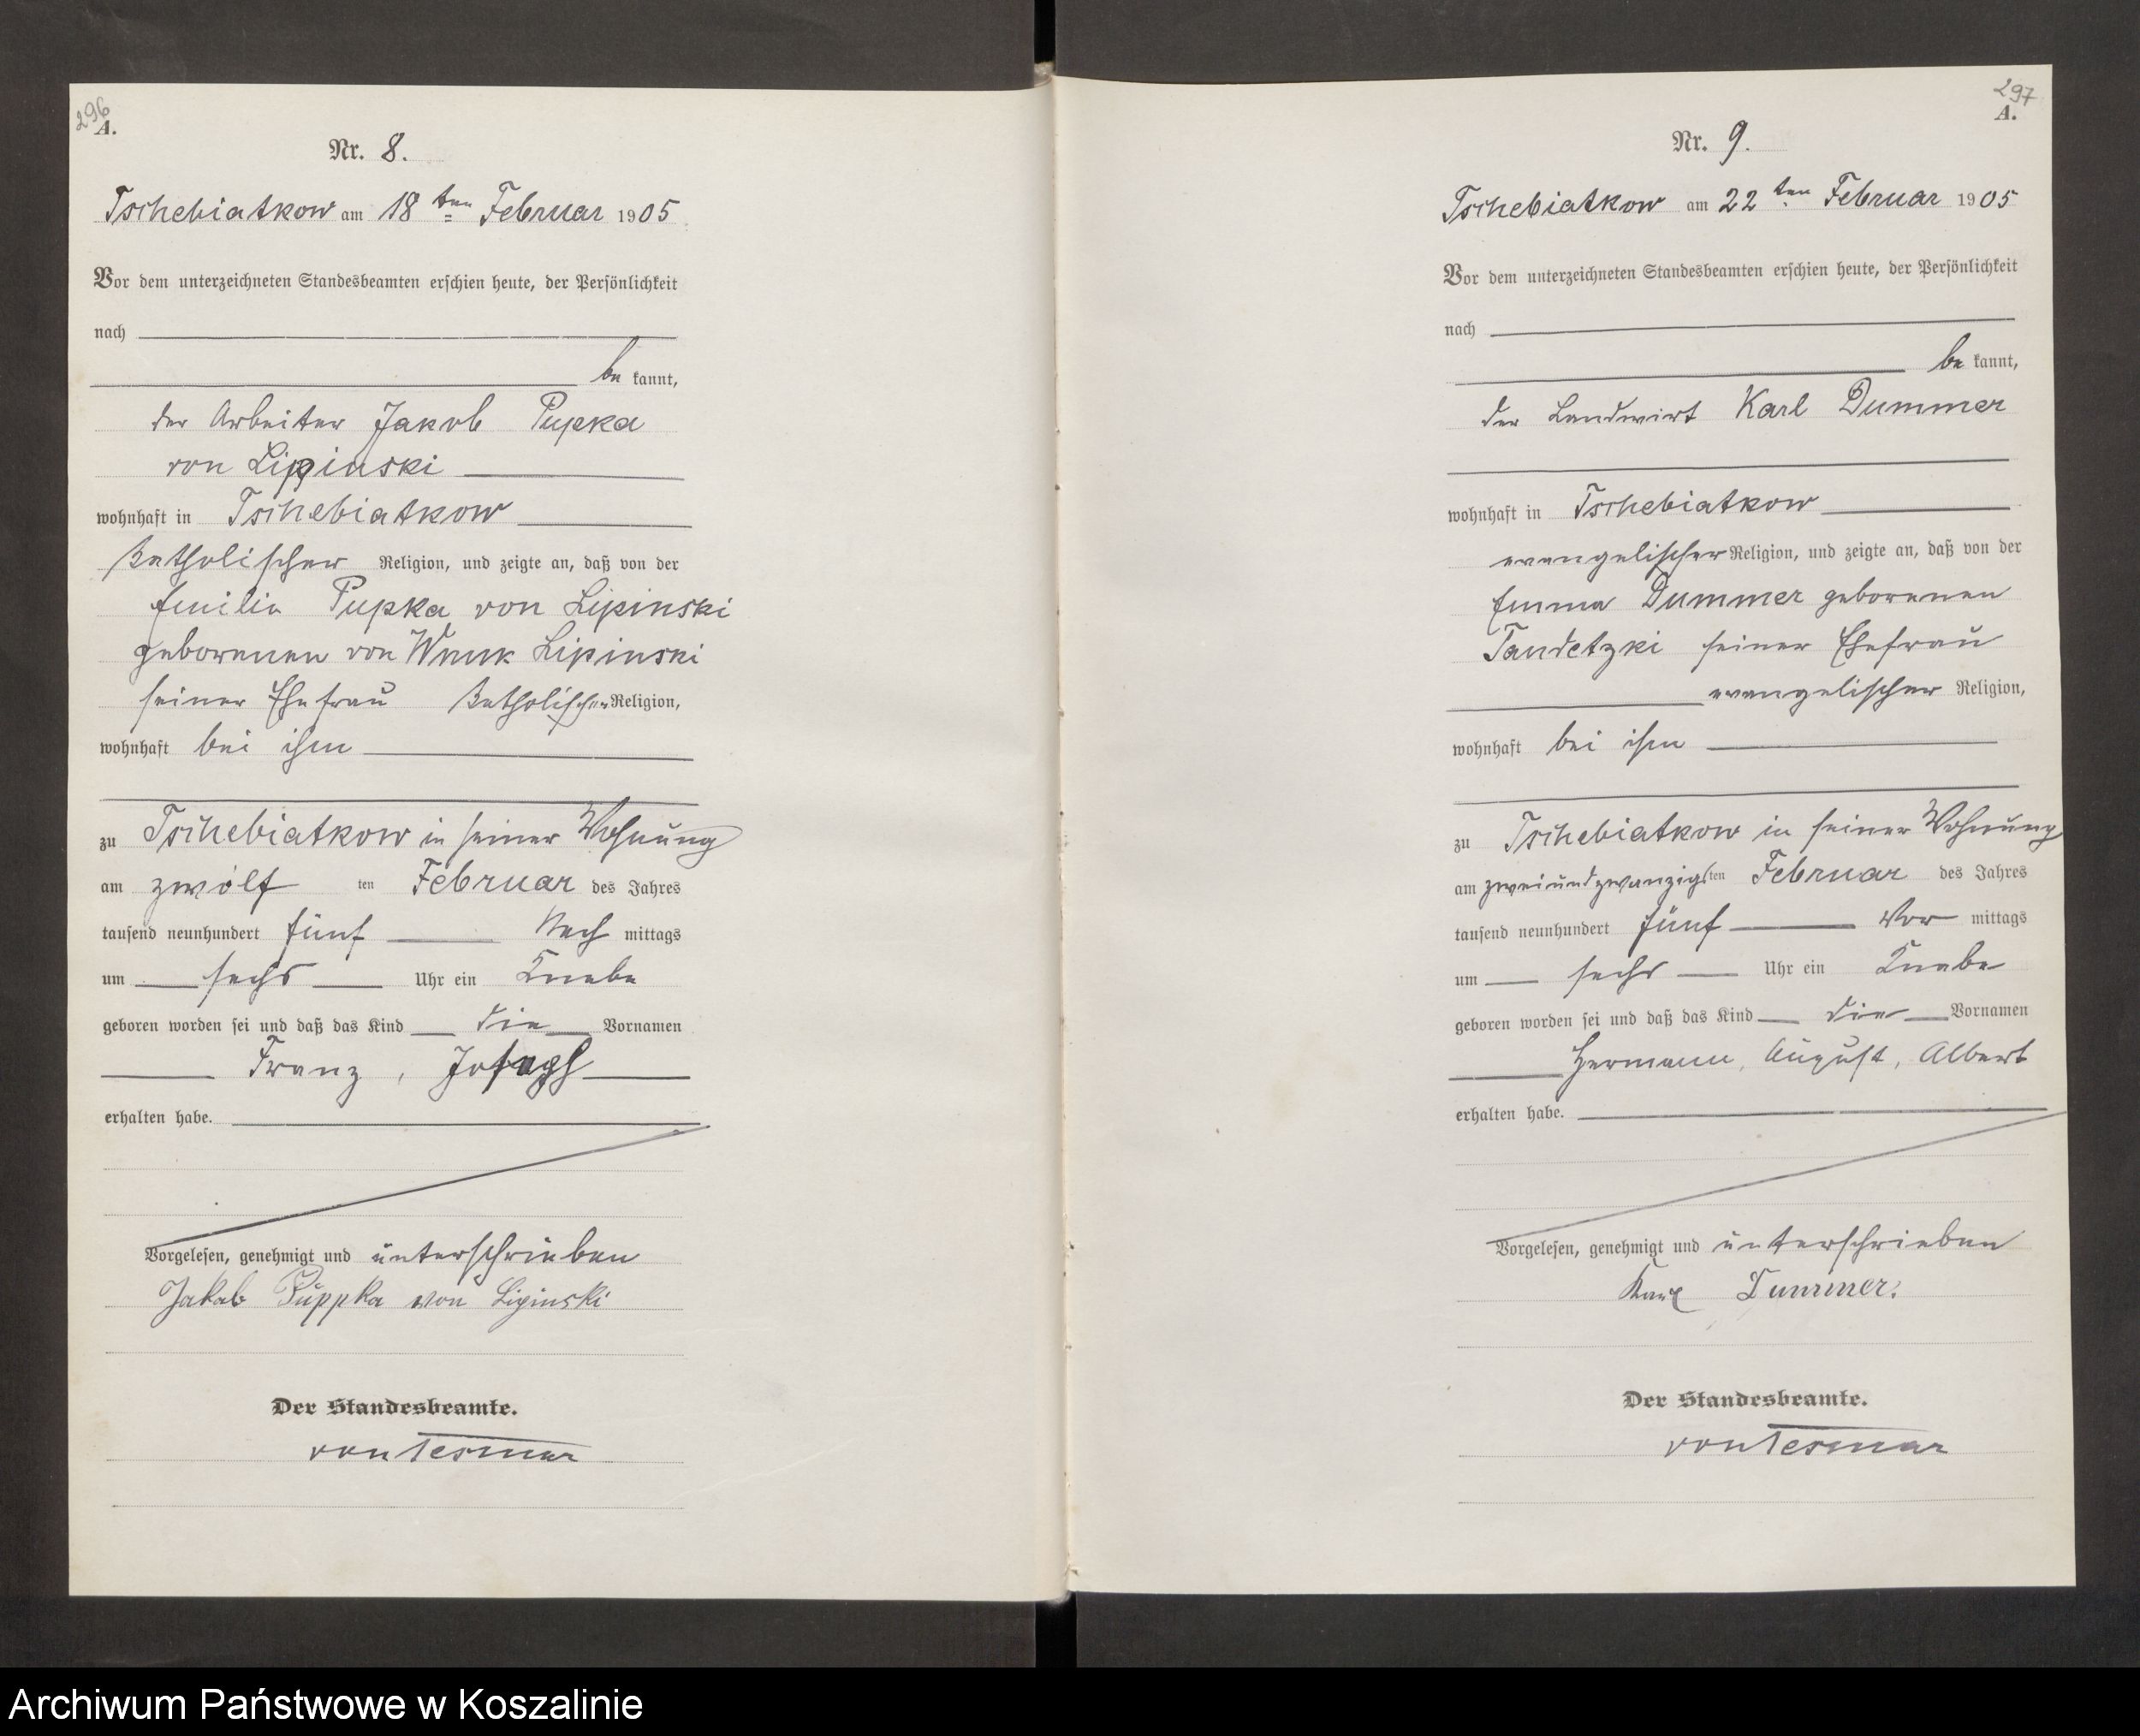 296
A.
Nr. 8.
Tschebiatkow am 18ten Februar 1905
Vor dem unterzeichneten Standesbeamten erschien heute, der Persönlichkeit
nach
be kannt,
der Arbeiter Jakob Pupka
von Lipinski
wohnhaft in Tschebiatkow
katholischer Religion, und zeigte an, daß von der
Emilie Pupka von Lipinski
geborenen von Wnuk Lipinski
seiner Ehefrau katholischer Religion,
wohnhaft bei ihm
zu Tschebiatkow in seiner Wohnung
am zwölf ten Februar des Jahres
tausend neunhundert fünf Nach mittags
um sechs Uhr ein Knabe
geboren worden sei und daß das Kind die Vornamen
Franz, Joseph
erhalten habe.
Vorgelesen, genehmigt und unterschrieben
Jakob Puppka von Lipinski
Der Standesbeamte.
von Tesmar
297
A.
Nr. 9.
Tschebiatkow am 22ten Februar 1905
Vor dem unterzeichneten Standesbeamten erschien heute, der Persönlichkeit
nach
be kannt,
der Landwirt Karl Dummer
wohnhaft in Tschebiatkow
evangelischer Religion, und zeigte an, daß von der
Emma Dummer geborenen
Tandetzki seiner Ehefrau
evangelischer Religion,
wohnhaft bei ihm
zu Tschebiatkow in seiner Wohnung
am zweiundzwanzigsten Februar des Jahres
tausend neunhundert fünf Vor mittags
um sechs Uhr ein Knabe
geboren worden sei und daß das Kind die Vornamen
Hermann, August, Albert
erhalten habe.
Vorgelesen, genehmigt und unterschrieben
Karl Dummer.
Der Standesbeamte.
von Tesmar
Archiwum Państwowe w Koszalinie